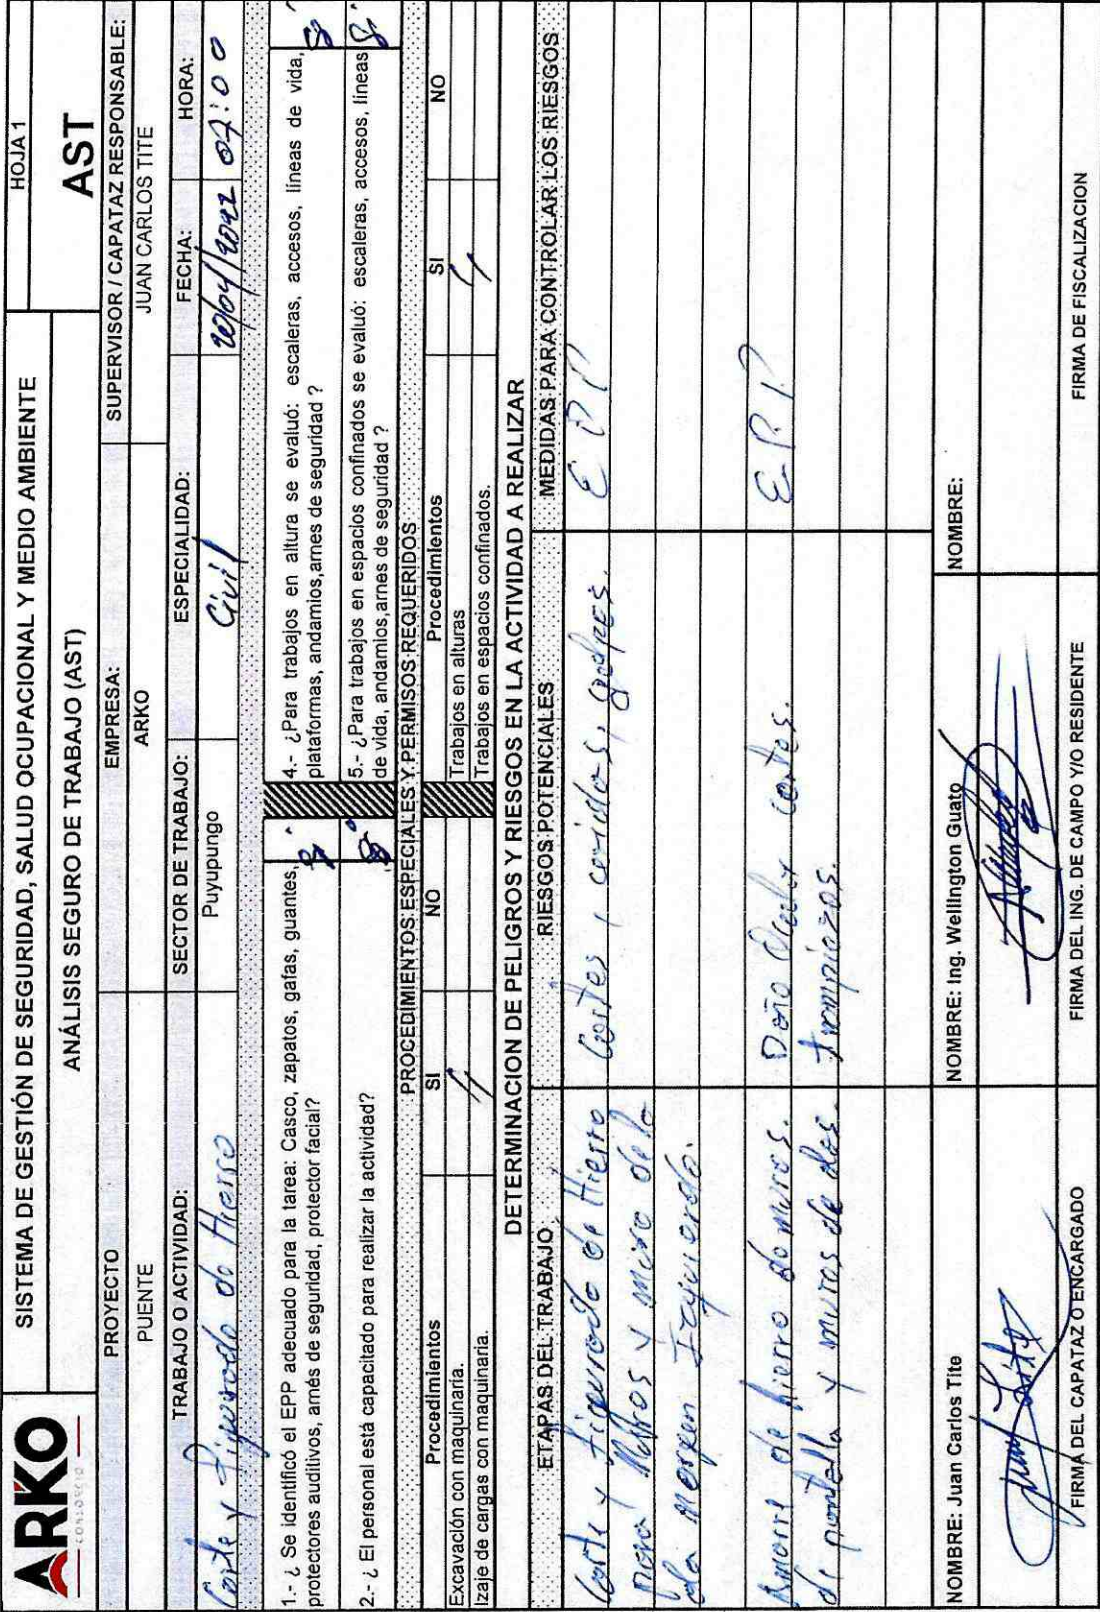 ARKO
CONSORCIO
SISTEMA DE GESTIÓN DE SEGURIDAD, SALUD OCUPACIONAL Y MEDIO AMBIENTE
HOJA 1
ANÁLISIS SEGURO DE TRABAJO (AST)
AST
PROYECTO
EMPRESA:
SUPERVISOR / CAPATAZ RESPONSABLE:
PUENTE
ARKO
JUAN CARLOS TITE
TRABAJO O ACTIVIDAD:
SECTOR DE TRABAJO:
ESPECIALIDAD:
FECHA:
HORA:
Corte y figurado de Hierro
Puyupungo
Civil
/04/2022
07:00
1.- ¿ Se identificó el EPP adecuado para la tarea: Casco, zapatos, gafas, guantes,
protectores auditivos, arnés de seguridad, protector facial?
Si
4.- ¿Para trabajos en altura se evaluó: escaleras, accesos, líneas de vida,
plataformas, andamios,arnes de seguridad ?
Si
2.- ¿ El personal está capacitado para realizar la actividad?
Si
5.- ¿Para trabajos en espacios confinados se evaluó: escaleras, accesos, líneas
de vida, andamios,arnes de seguridad ?
Si
PROCEDIMIENTOS ESPECIALES Y PERMISOS REQUERIDOS
Procedimientos
SI
NO
Procedimientos
SI
NO
Excavación con maquinaria.
Trabajos en alturas
Izaje de cargas con maquinaria.
Trabajos en espacios confinados.
DETERMINACION DE PELIGROS Y RIESGOS EN LA ACTIVIDAD A REALIZAR
ETAPAS DEL TRABAJO
RIESGOS POTENCIALES
MEDIDAS PARA CONTROLAR LOS RIESGOS
Corte y figurado de Hierro
Cortes, caidos, golpes.
E P P
para y muro de la
la Margen Izquierdo.
Amarre de hierro de muros.
Daño cortes.
E.P.P
de pantalla y muros de alas.
NOMBRE: Juan Carlos Tite
NOMBRE: Ing. Wellington Guato
NOMBRE:
FIRMA DEL CAPATAZ O ENCARGADO
FIRMA DEL ING. DE CAMPO Y/O RESIDENTE
FIRMA DE FISCALIZACION